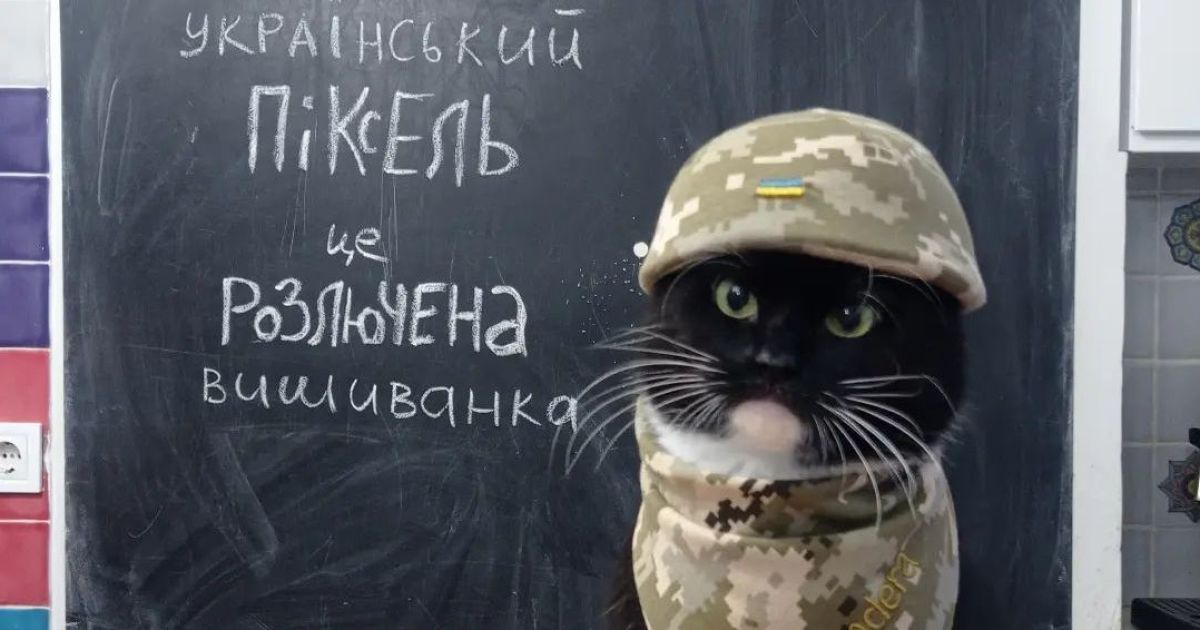 український
піксель
це
розлючена
вишиванка
ndera